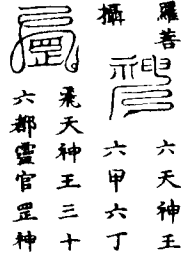 羅菩 六天神王
攝 六甲六丁
飛天神王三十
六都靈官罡神